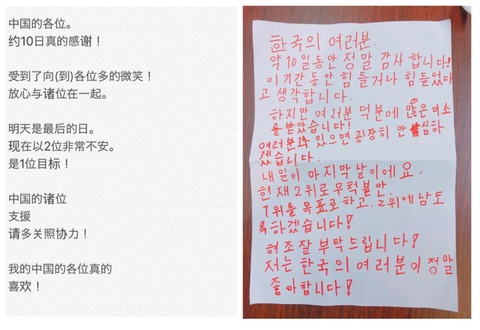 中国的各位。
约10日真的感谢！
受到了向(到)各位多的微笑！
放心与诸位在一起。
明天是最后的日。
现在以2位非常不安。
是1位目标！
中国的诸位
支援
请多关照协力！
我的中国的各位真的
喜欢！
한국의 여러분.
약 10일동안 정말 감사합니다!
이 기간동안 힘들거나 힘들었다
고 생각합니다.
하지만 여러분 덕분에 많은 미소
를 받았습니다!
여러분과 있으면 굉장히 안심하
겠습니다.
내일이 마지막날이에요.
현재 2위로 무척불안.
1위를 목표로 하고. 2위에 남도
록하겠습니다!
협조잘 부탁드립니다!
저는 한국의 여러분이 정말
좋아합니다!